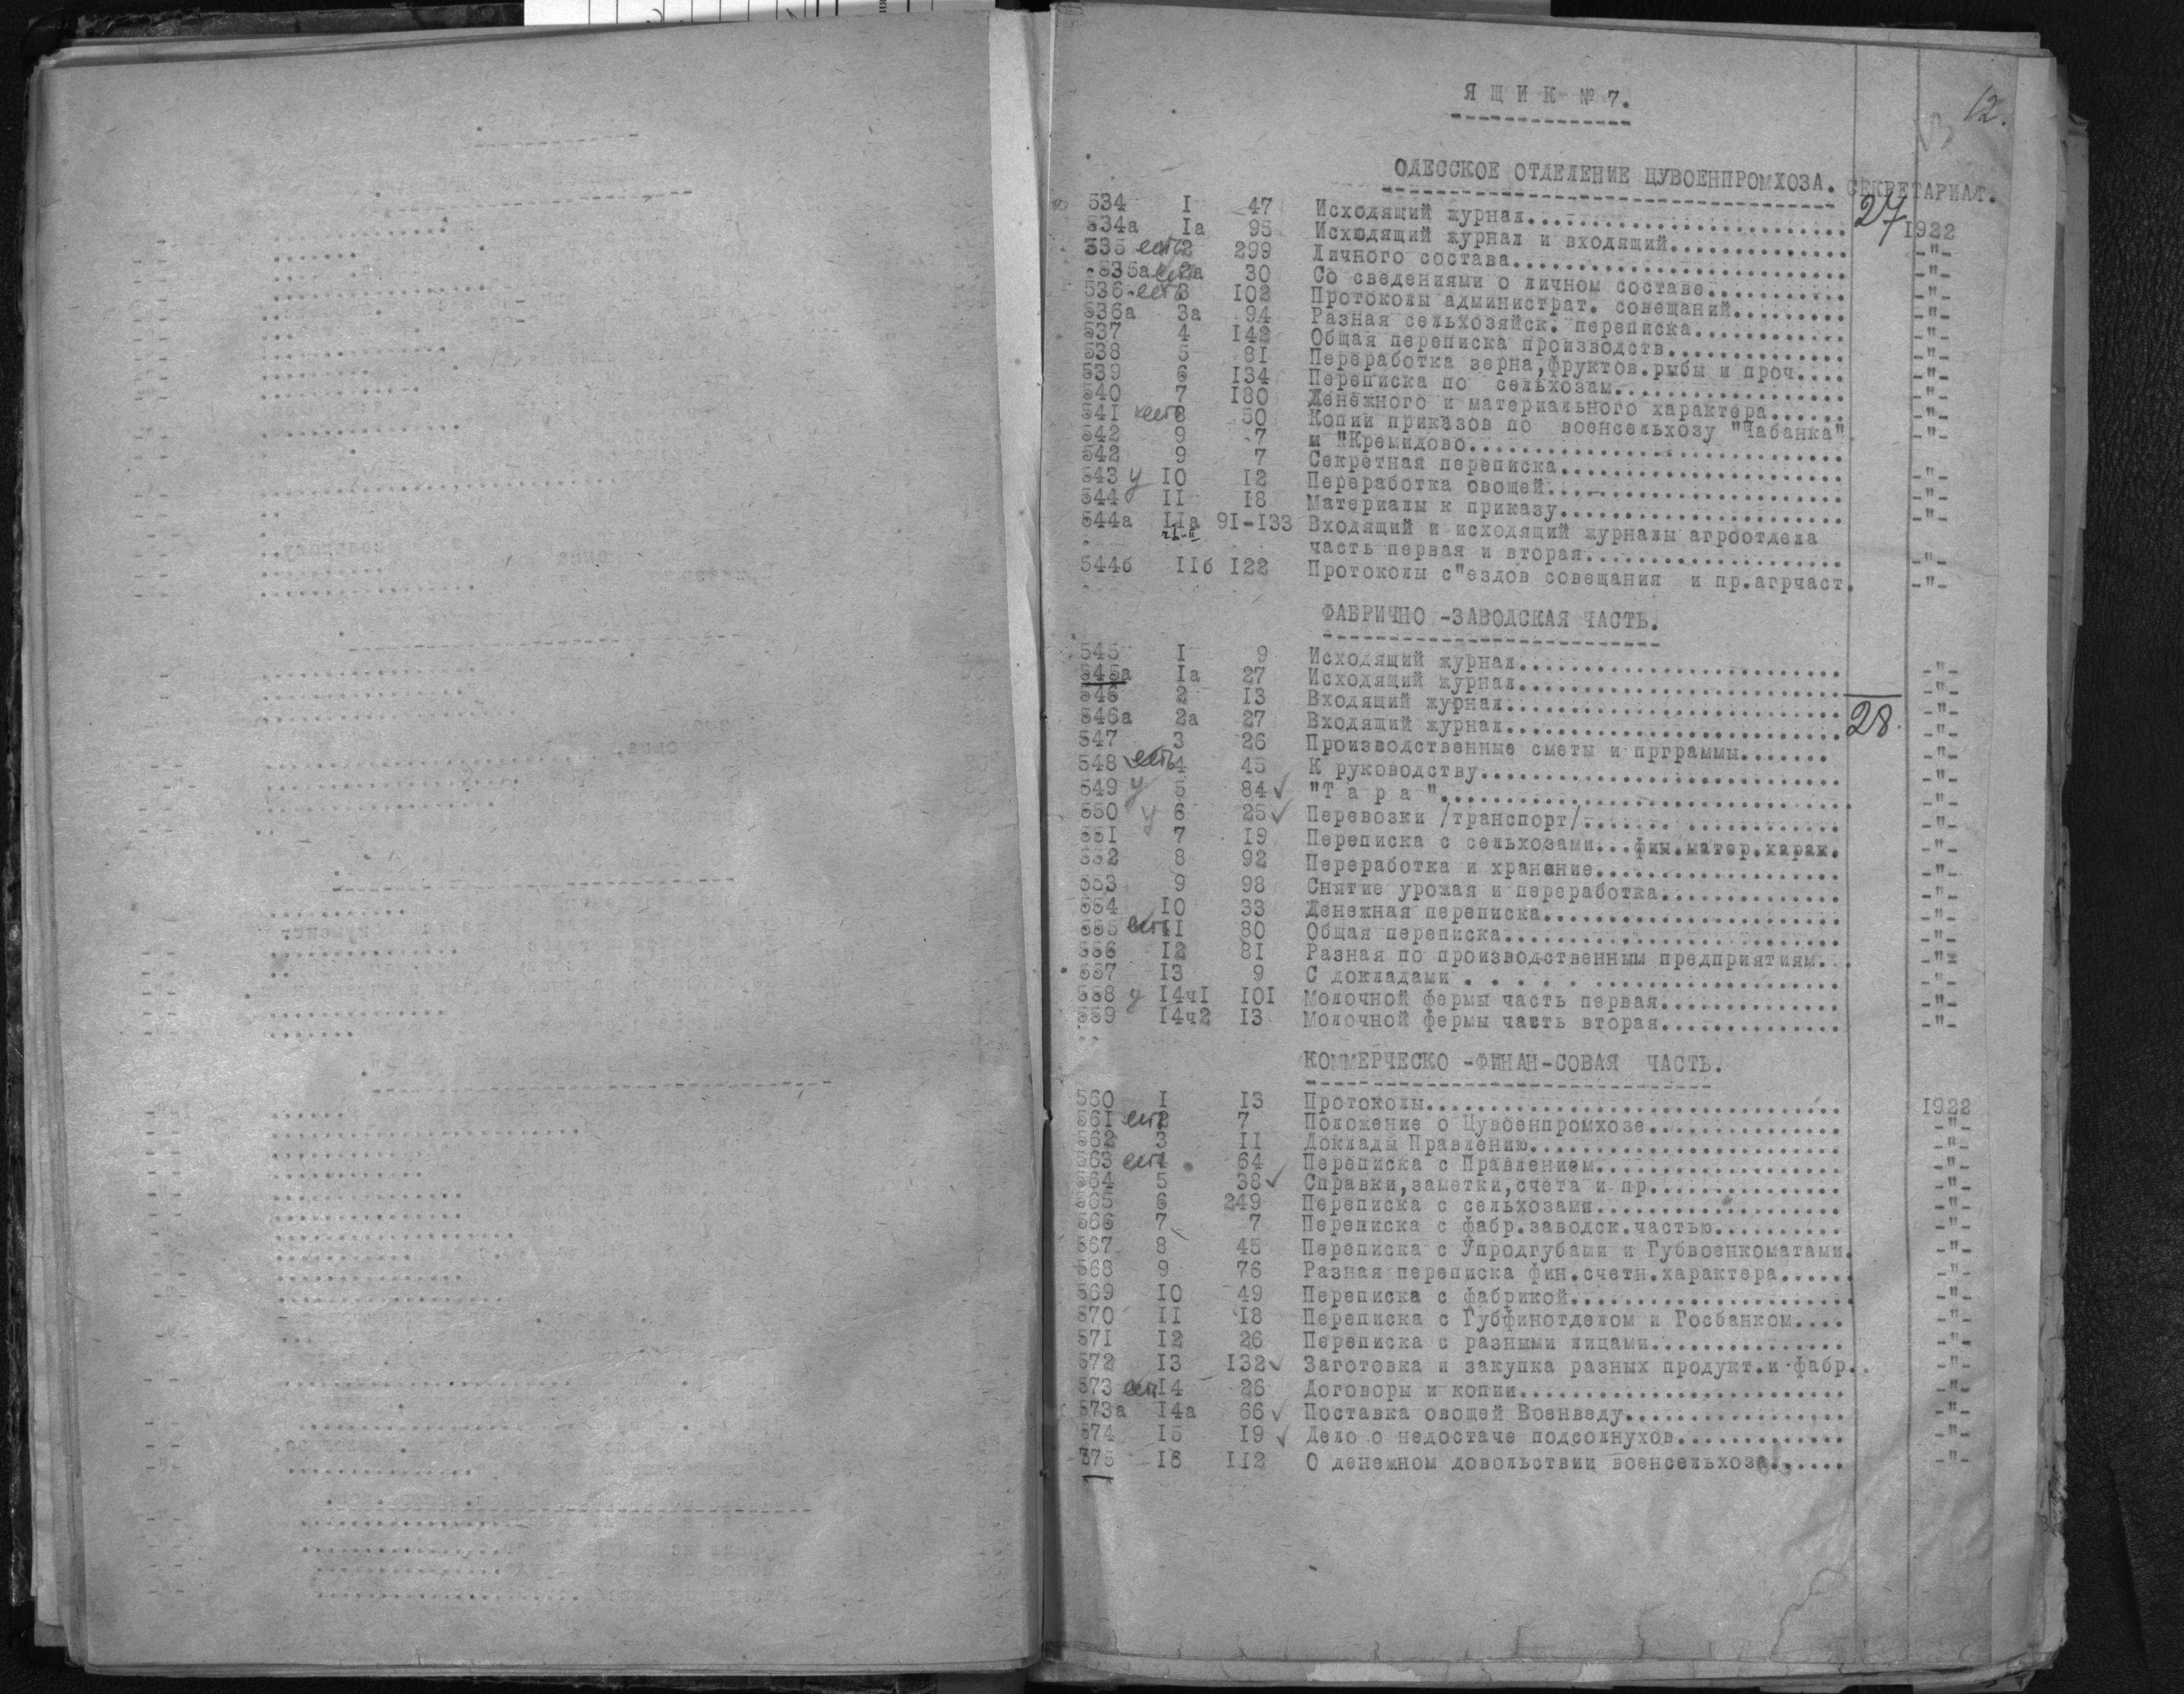 Я Щ И К № 7.
12.
ОДЕССКОЕ ОТДЕЛЕНИЕ ЦУВОЕНПРОМХОЗА. СЕКРЕТАРИАТ.
27
534 I 47 Исходящий журнал........................ 1922
534а Iа 95 Исходящий журнал и входящий............. -"-
535 есть 2 299 Личного состава......................... -"-
535а есть 2а 30 Со сведениями о личном составе........... -"-
536 есть 3 102 Протоколы администрат. совещаний......... -"-
536а 3а 94 Разная сельхозяйск. переписка............ -"-
537 4 142 Общая переписка производств.............. -"-
538 5 81 Переработка зерна,фруктов.рыбы и проч.... -"-
539 6 134 Переписка по сельхозам................... -"-
540 7 180 Денежного и материального характера...... -"-
541 есть 8 50 Копии приказов по военсельхозу "Чабанка" -"-
542 9 7 и "Кремидово.............................
542 9 7 Секретная переписка...................... -"-
543 у 10 12 Переработка овощей....................... -"-
544 II 18 Материалы к приказу...................... -"-
544а IIа 91-133 Входящий и исходящий журналы агроотдела
часть первая и вторая.................... -"-
544б IIб 122 Протоколы с"ездов совещания и пр.агрчаст. -"-
ФАБРИЧНО -ЗАВОДСКАЯ ЧАСТЬ.
545 I 9 Исходящий журнал......................... -"-
545а Iа 27 Исходящий журнал......................... -"-
546 2 13 Входящий журнал.......................... -"-
546а 2а 27 Входящий журнал.......................... 28 -"-
547 3 26 Производственные сметы и прграммы....... -"-
548 есть 4 45 К руководству............................ -"-
549 у 5 84 ✓ "Т а р а"................................ -"-
550 у 6 25 ✓ Перевозки /транспорт/....... ............ -"-
551 7 19 Переписка с сельхозами...фин.матер.харак. -"-
552 8 92 Переработка и хранение................... -"-
553 9 98 Снятие урожая и переработка.............. -"-
554 10 33 Денежная переписка....................... -"-
555 есть II 80 Общая переписка.......................... -"-
556 12 81 Разная по производственным предприятиям.. -"-
557 13 9 С докладами . . . . . ................... -"-
558 у 14ч1 101 Молочной фермы часть первая.............. -"-
559 14ч2 13 Молочной фермы часть вторая.............. -"-
КОММЕРЧЕСКО -ФИНАН-СОВАЯ ЧАСТЬ.
560 I 13 Протоколы................................ 1922
561 есть 2 7 Положение о Цувоенпромхозе............... -"-
562 3 II Доклады Правлению........................ -"-
563 есть 4 64 Переписка с Правлением................... -"-
564 5 38 ✓ Справки,заметки,счета и пр............... -"-
565 6 249 Переписка с сельхозами................... -"-
566 7 7 Переписка с фабр.заводск.частью.......... -"-
567 8 45 Переписка с Упродгубами и Губвоенкоматами. -"-
568 9 76 Разная переписка фин.счетн.характера...... -"-
569 10 49 Переписка с фабрикой...................... -"-
570 II 18 Переписка с Губфинотделом и Госбанком.... -"-
571 12 26 Переписка с разными лицами............... -"-
572 13 132 ✓ Заготовка и закупка разных продукт.и фабр.. -"-
573 есть 14 26 Договоры и копии......................... -"-
573а 14а 66 ✓ Поставка овощей Военведу................. -"-
574 15 19 ✓ Дело о недостаче подсолнухов............. -"-
575 16 112 О денежном довольствии военсельхоза...... -"-